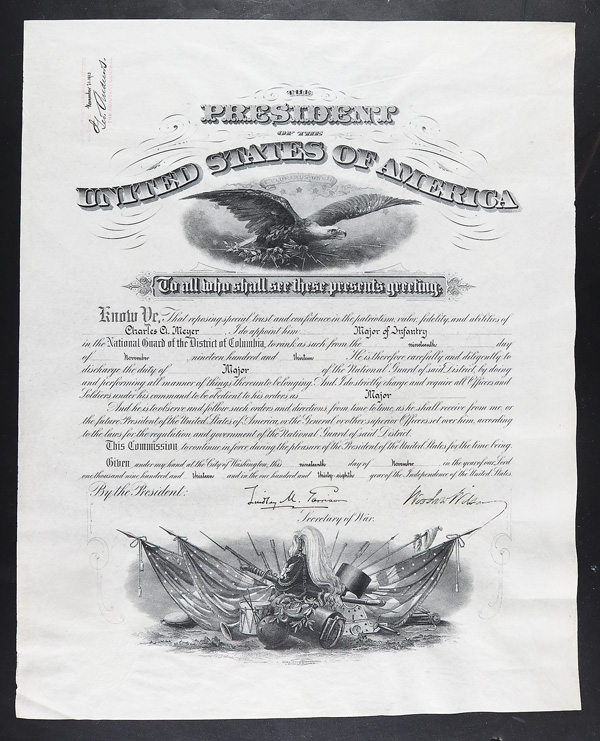 November 21, 1913
THE
PRESIDENT
OF THE
UNITED STATES OF AMERICA
To all who shall see these presents greeting:
Know Ye, That reposing special trust and confidence in the patriotism, valor, fidelity, and abilities of
Charles A. Meyer I do appoint him Major of Infantry
in the National Guard of the District of Columbia, to rank as such from the nineteenth day
of November nineteen hundred and thirteen. He is therefore carefully and diligently to
discharge the duty of Major of the National Guard of said District, by doing
and performing all manner of things thereunto belonging. And I do strictly charge and require all Officers and
Soldiers under his command to be obedient to his orders as Major
And he is to observe and follow such orders and directions, from time to time, as he shall receive from me, or
the future President of the United States of America, or the General or other superior Officers set over him, according
to the laws for the regulation and government of the National Guard of said District.
This Commission to continue in force during the pleasure of the President of the United States for the time being.
Given under my hand at the City of Washington, this nineteenth day of November in the year of our Lord
one thousand nine hundred and thirteen and in the one hundred and thirty-eighth year of the Independence of the United States
By the President:
Lindley M. Garrison Woodrow Wilson
Secretary of War.